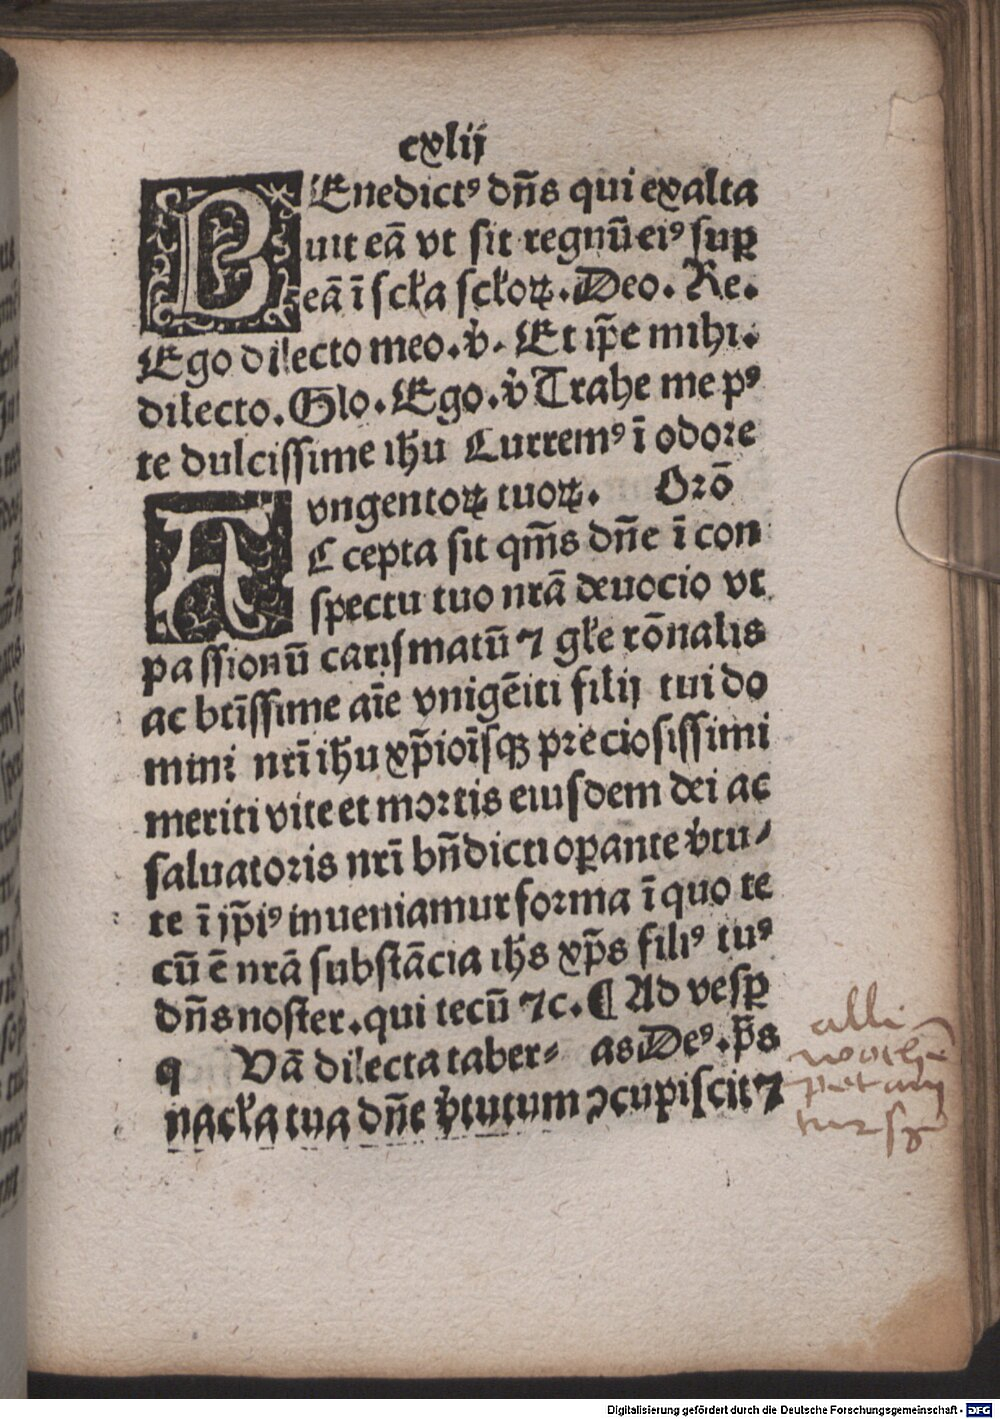 cxlij
BEnedictꝰ dn̄s qui exalta
uit eā vt sit regnū eiꝰ suꝑ
eā ī scl̄a scl̄oꝝ. Deo. Re.
Ego dilecto meo. v̄. Et ip̄e mihi.
dilecto. Glo. Ego. v̄ Trahe me pꝰ
te dulcissime ihu Curremꝰ ī odore
vngentoꝝ tuoꝝ. Orō
ACcepta sit qm̄s dn̄e ī con
spectu tuo nrā deuocio vt
passionū carismatū ⁊ gl̄e rōnalis
ac btīssime aīe vnigēiti filij tui do
mini nrī ihu xp̄i oīsqꝫ preciosissimi
meriti vite et mortis eiusdem dei ac
saluatoris nrī bn̄dicti oꝑante v̄tu⸗
te ī ip̄iꝰ inueniamur forma ī quo te
cū ē nrā substācia ihs xp̄s filiꝰ tuꝰ
dn̄s noster. qui tecū ⁊c. ¶ Ad vesꝑ
q Vā dilecta taber⸗ as Deꝰ. p̄s
nacl̄a tua dn̄e v̄tutum ꝯcupiscit ⁊
alli
Digitalisierung gefördert durch die Deutsche Forschungsgemeinschaft - DFG